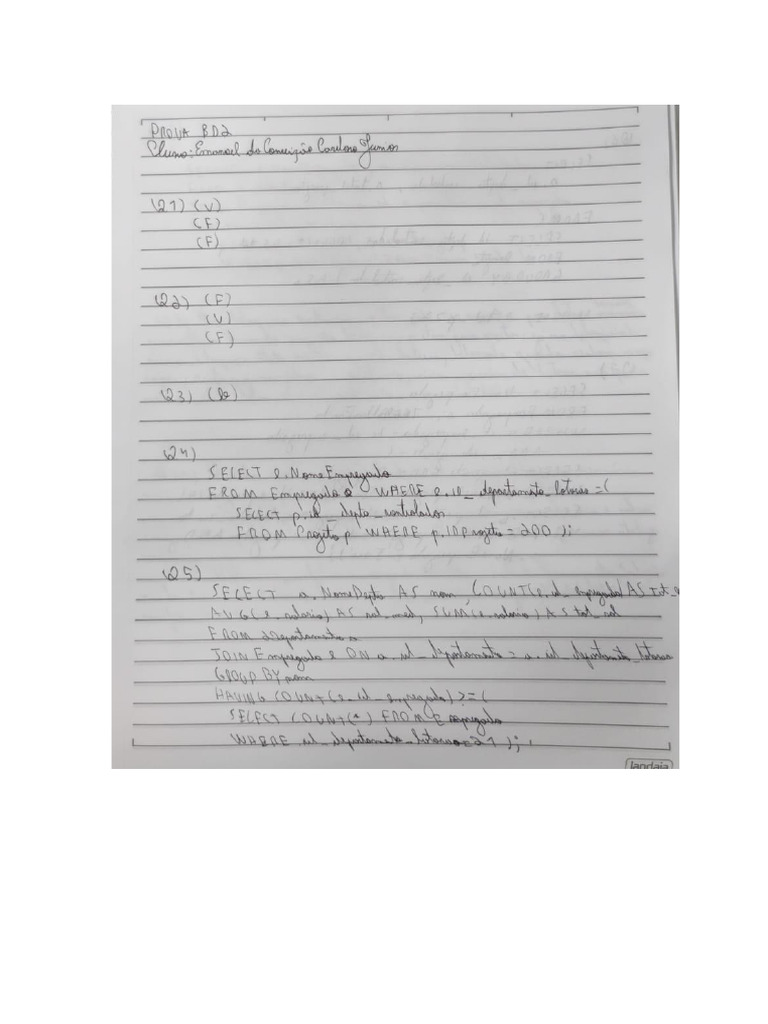 PROVA BD2
Aluno: Emanoel da Conceição Cardoso Junior
Q1) (V)
(F)
(F)
Q2) (F)
(V)
(F)
Q3) (b)
Q4)
SELECT e.NomeEmpregado
FROM Empregado e WHERE e.id_departamento_lotacao = (
SELECT p.id_depto_controlador
FROM Projeto p WHERE p.IDProjeto = 200 );
Q5)
SELECT a.NomeDepto AS nom, COUNT(e.id_empregado) AS tot_e
AVG(e.salario) AS sal_med, SUM(e.salario) AS tot_sal
FROM Departamento a
JOIN Empregado e ON a.id_departamento = a.id_departamento_lotacao
GROUP BY nom
HAVING COUNT(e.id_empregado) >= (
SELECT COUNT(*) FROM Empregado
WHERE id_departamento_lotacao = 21 );
jandaia